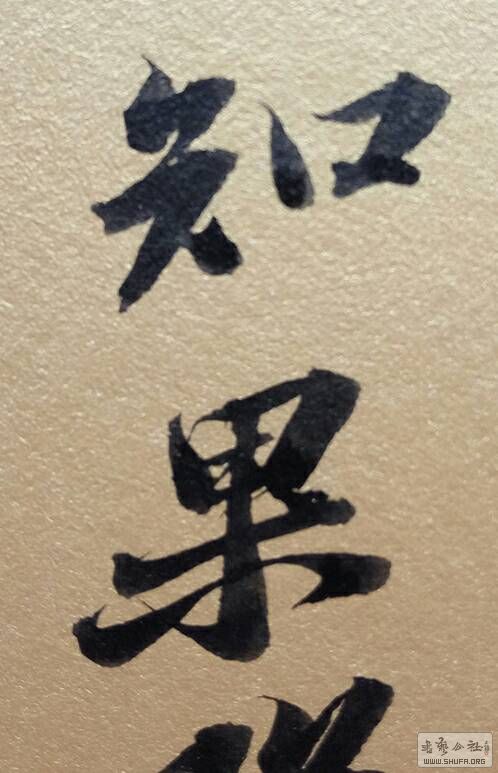 知果
书艺公社
WWW.SHUFA.ORG